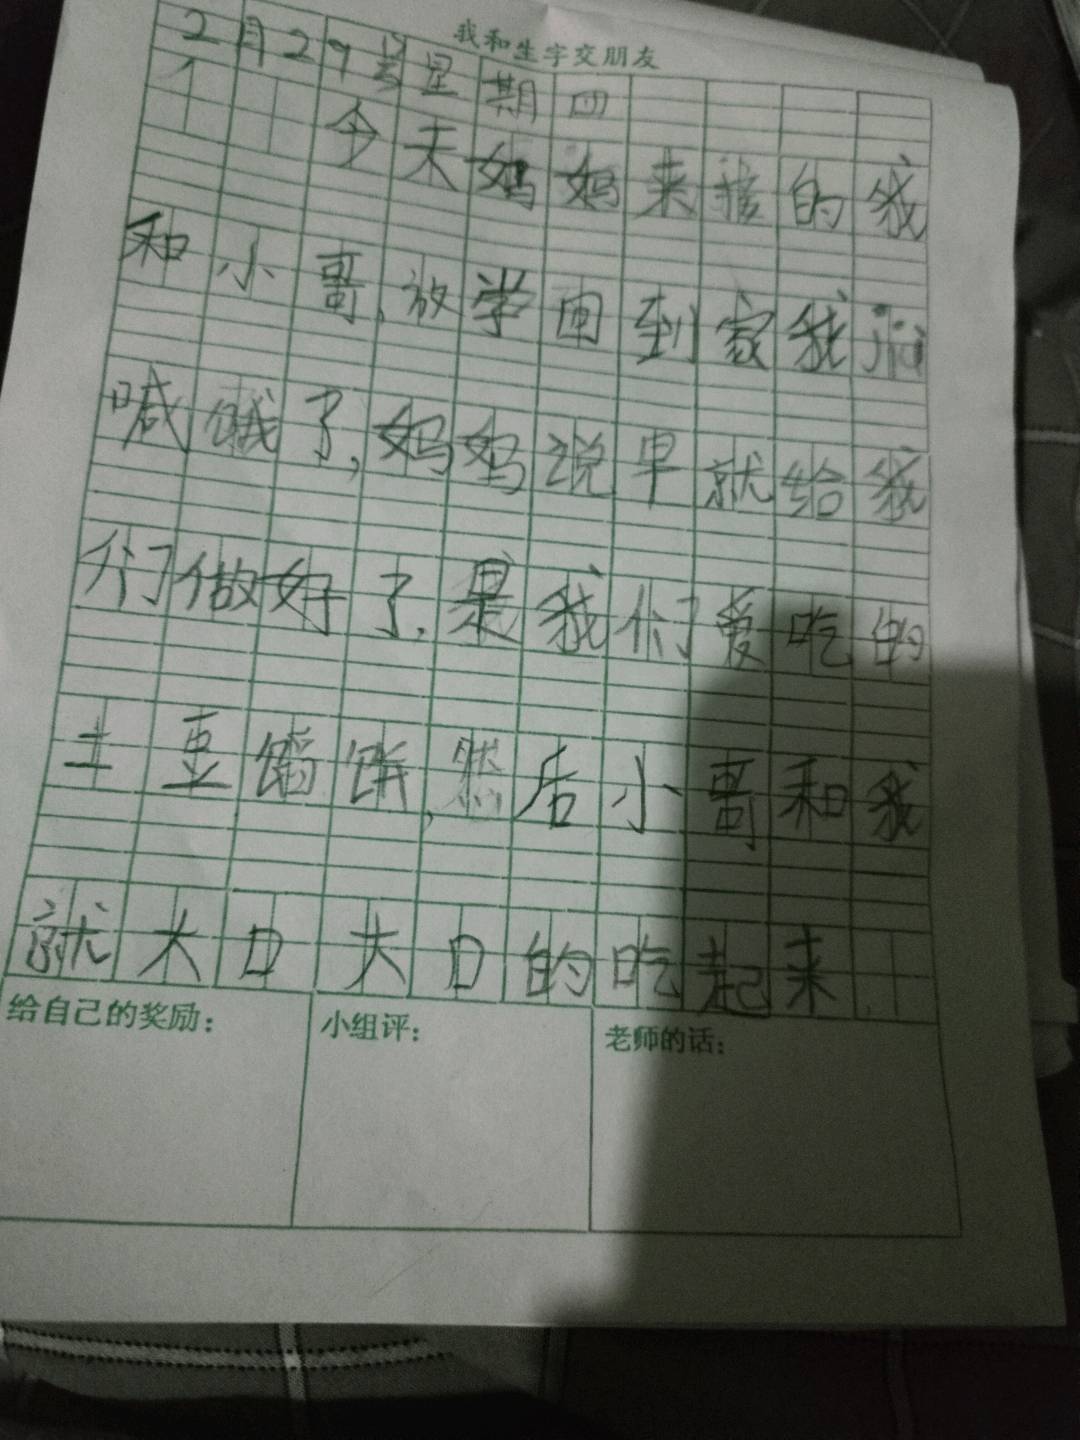 我和生字交朋友
2月29号星期四
今天妈妈来接的我
和小哥,放学回到家我们
喊饿了,妈妈说早就给我
们做好了,是我们爱吃的
土豆馅饼,然后小哥和我
就大口大口的吃起来.
给自己的奖励: 小组评: 老师的话: